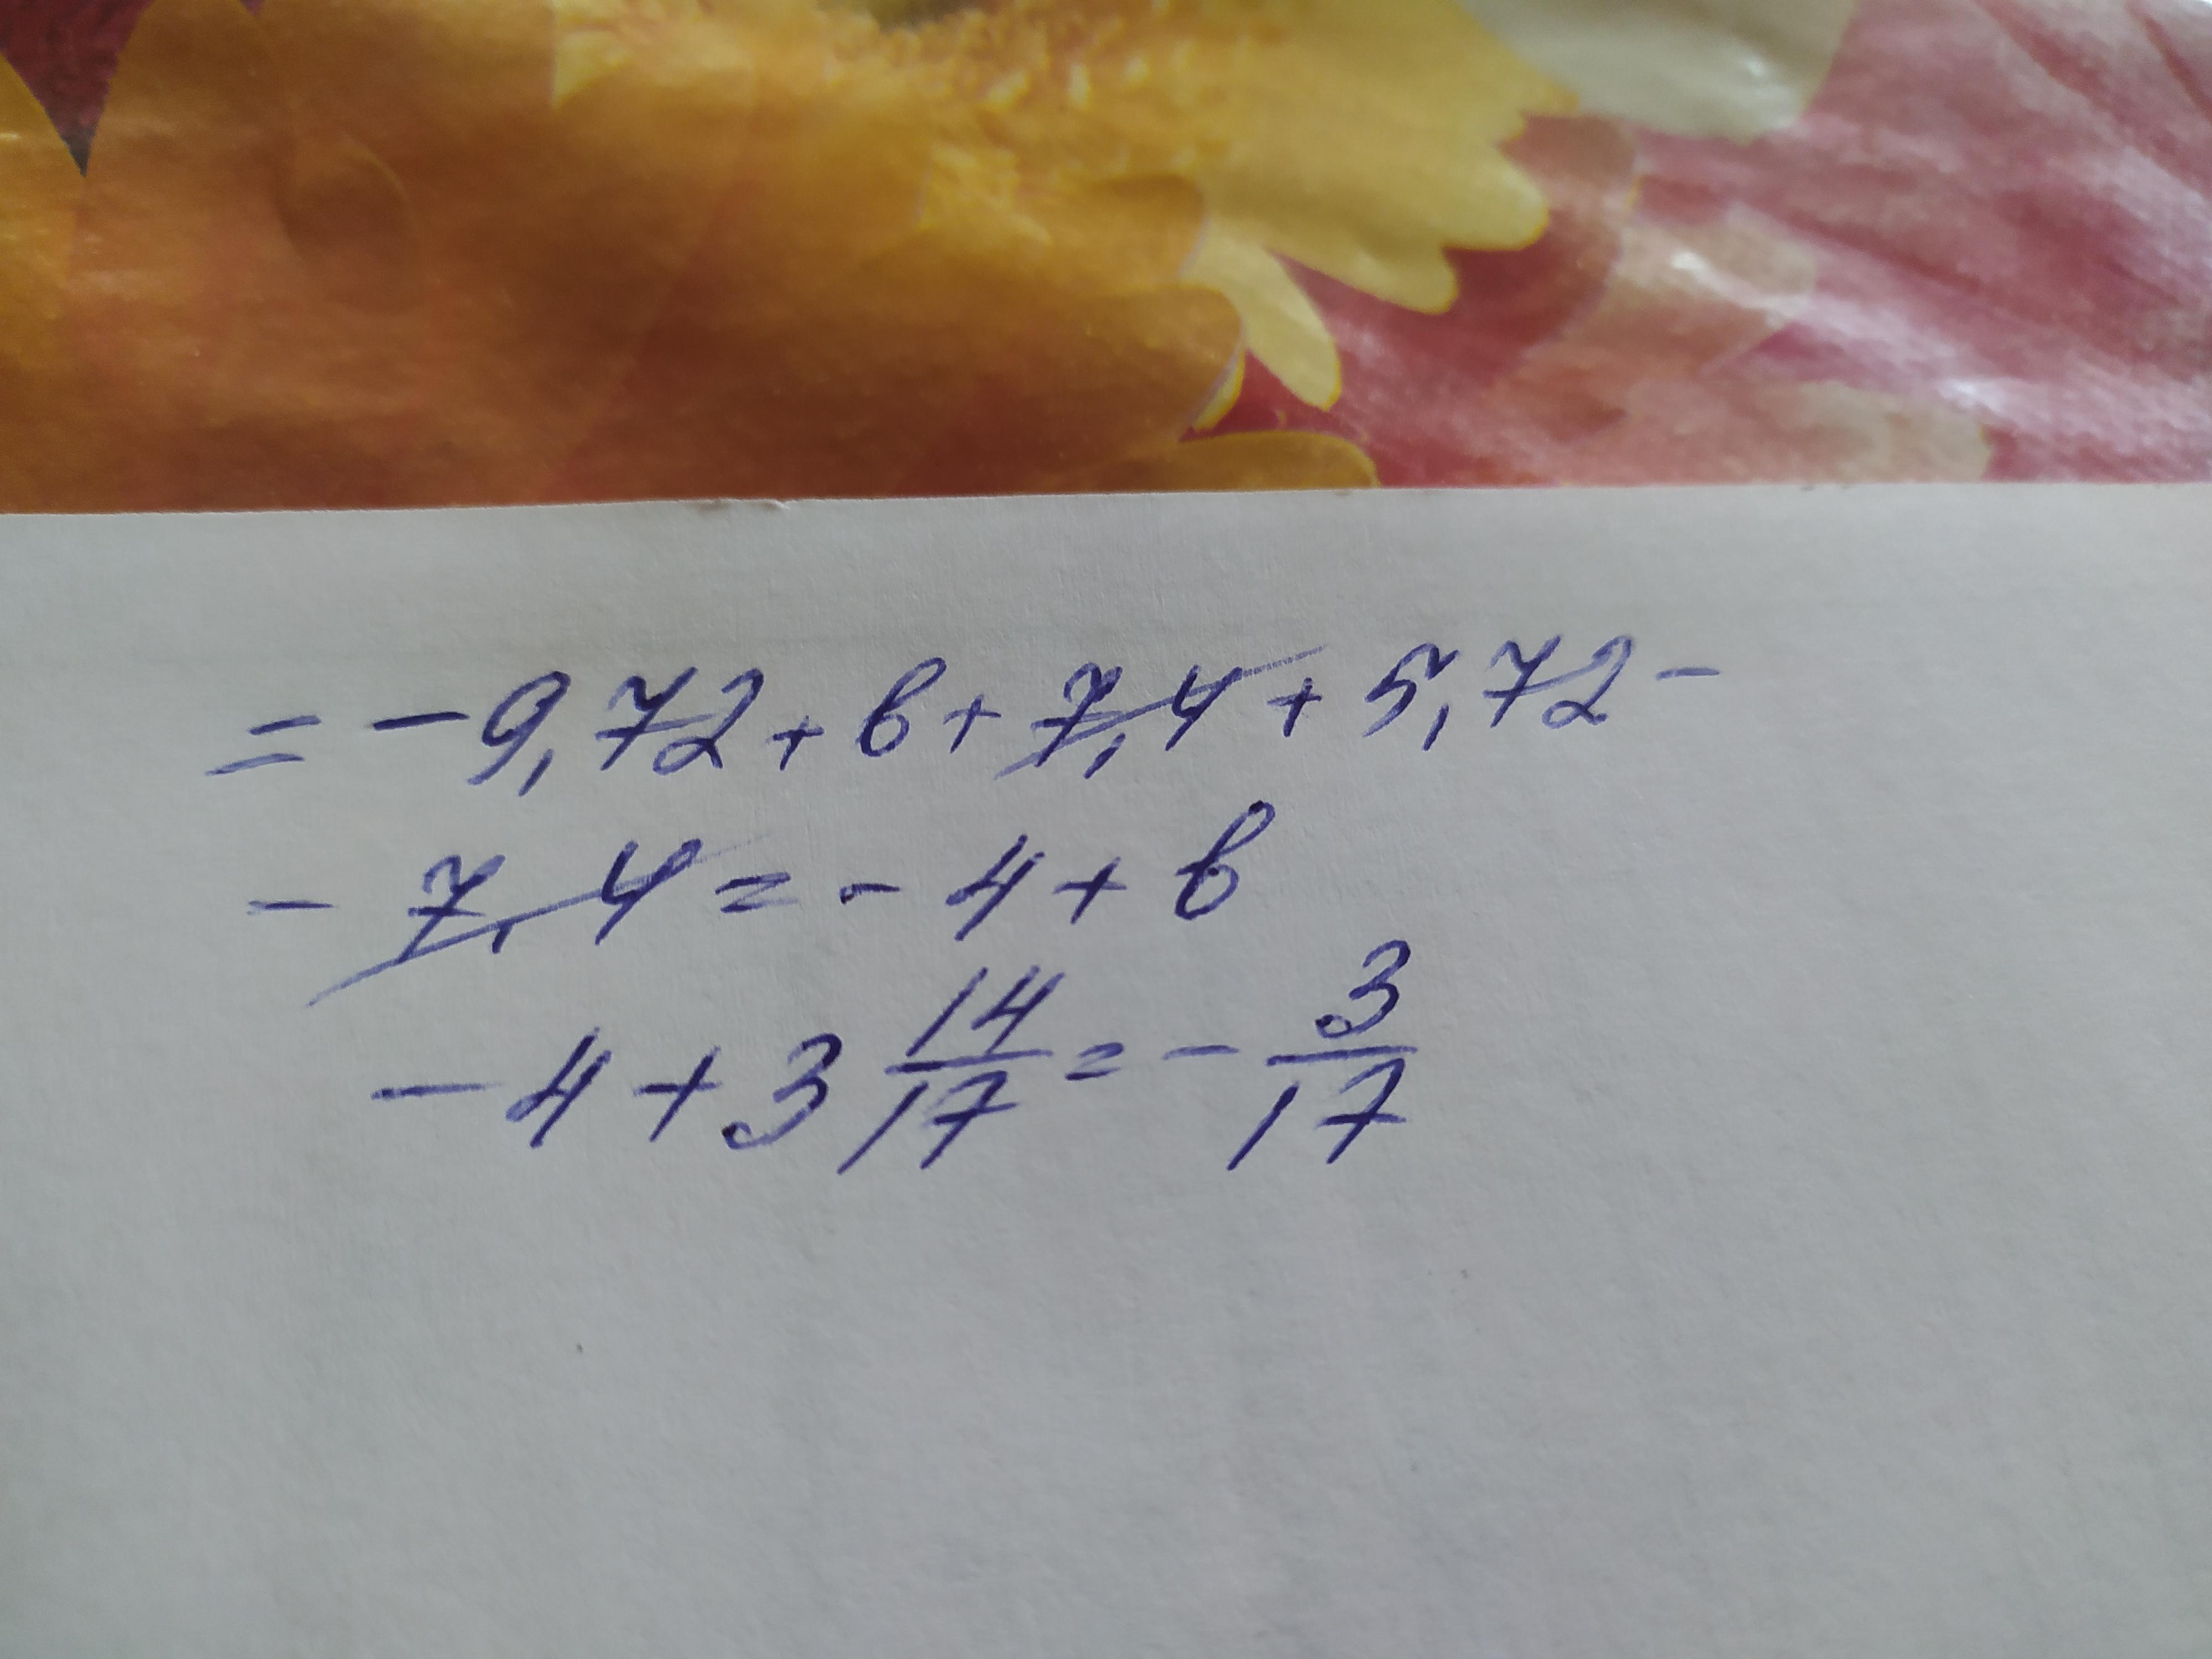 = - 9,72 + b + 7,4 + 5,72 -
- 7,4 = - 4 + b
- 4 + 3 14/17 = - 3/17